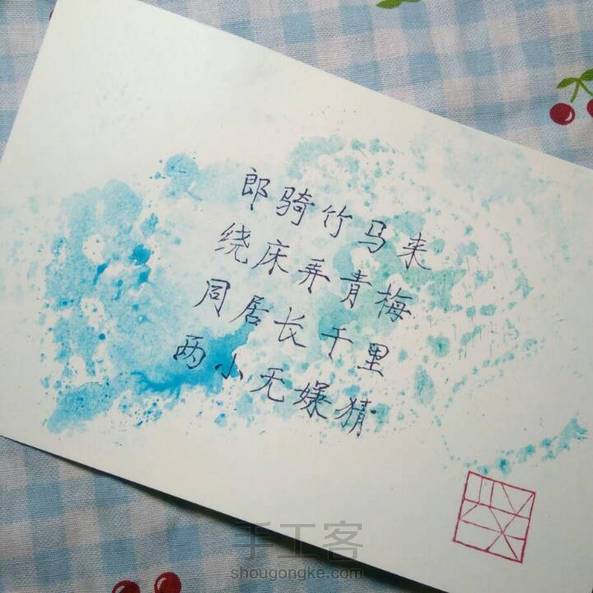 郎骑竹马来
绕床弄青梅
同居长千里
两小无嫌猜
手工客
shougongke.com